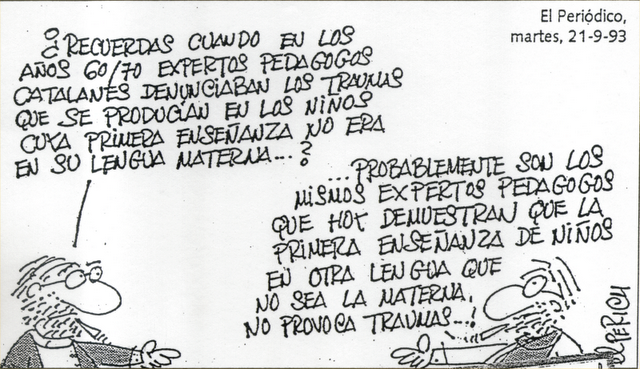 El Periódico,
martes, 21-9-93
¿RECUERDAS CUANDO EN LOS
AÑOS 60/70 EXPERTOS PEDAGOGOS
CATALANES DENUNCIABAN LOS TRAUMAS
QUE SE PRODUCIAN EN LOS NIÑOS
CUYA PRIMERA ENSEÑANZA NO ERA
EN SU LENGUA MATERNA...?
...PROBABLEMENTE SON LOS
MISMOS EXPERTOS PEDAGOGOS
QUE HOY DEMUESTRAN QUE LA
PRIMERA ENSEÑANZA DE NIÑOS
EN OTRA LENGUA QUE
NO SEA LA MATERNA,
NO PROVOCA TRAUMAS...!
PERICH